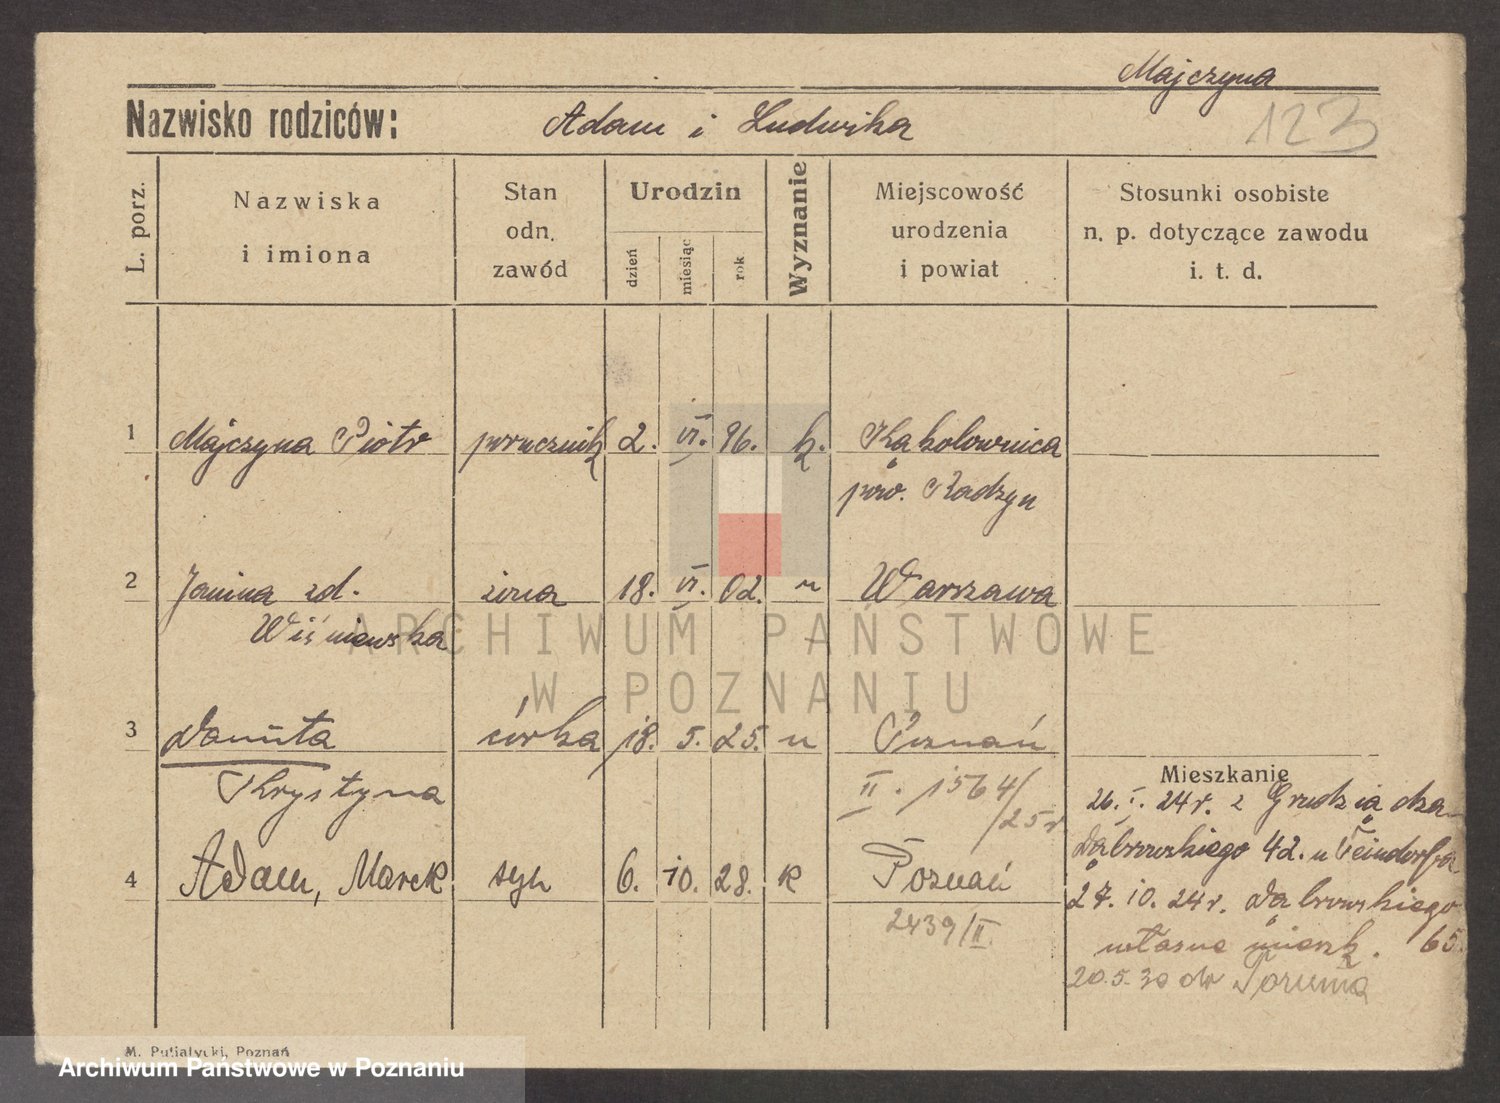 Majczyna
Nazwisko rodziców: Adam i Ludwika
123
L. porz.
Nazwiska
i imiona
Stan
odn.
zawód
Urodzin
dzień
miesiąc
rok
Wyznanie
Miejscowość
urodzenia
i powiat
Stosunki osobiste
n. p. dotyczące zawodu
i. t. d.
1 Majczyna Piotr porucznik 2. VI. 96. k. Kąkolownica
pow. Radzyn
2 Janina zd. żona 18. VI. 02. u Warszawa
Wiśniewska
ARCHIWUM PAŃSTWOWE
W POZNANIU
3 Danuta córka 18. 5. 25. u Poznań
Krystyna
II. 1564/
/25r
4 Adam, Marek syn 6. 10. 28. K Poznań
2439/II.
Mieszkanie
26. I. 24r. z Grudziądza
Dąbrowskiego 42. u
27. 10. 24r. Dąbrowskiego
własne mieszk. 65.
20.5.30 do Torunia
M. Putiatycki, Poznań
Archiwum Państwowe w Poznaniu